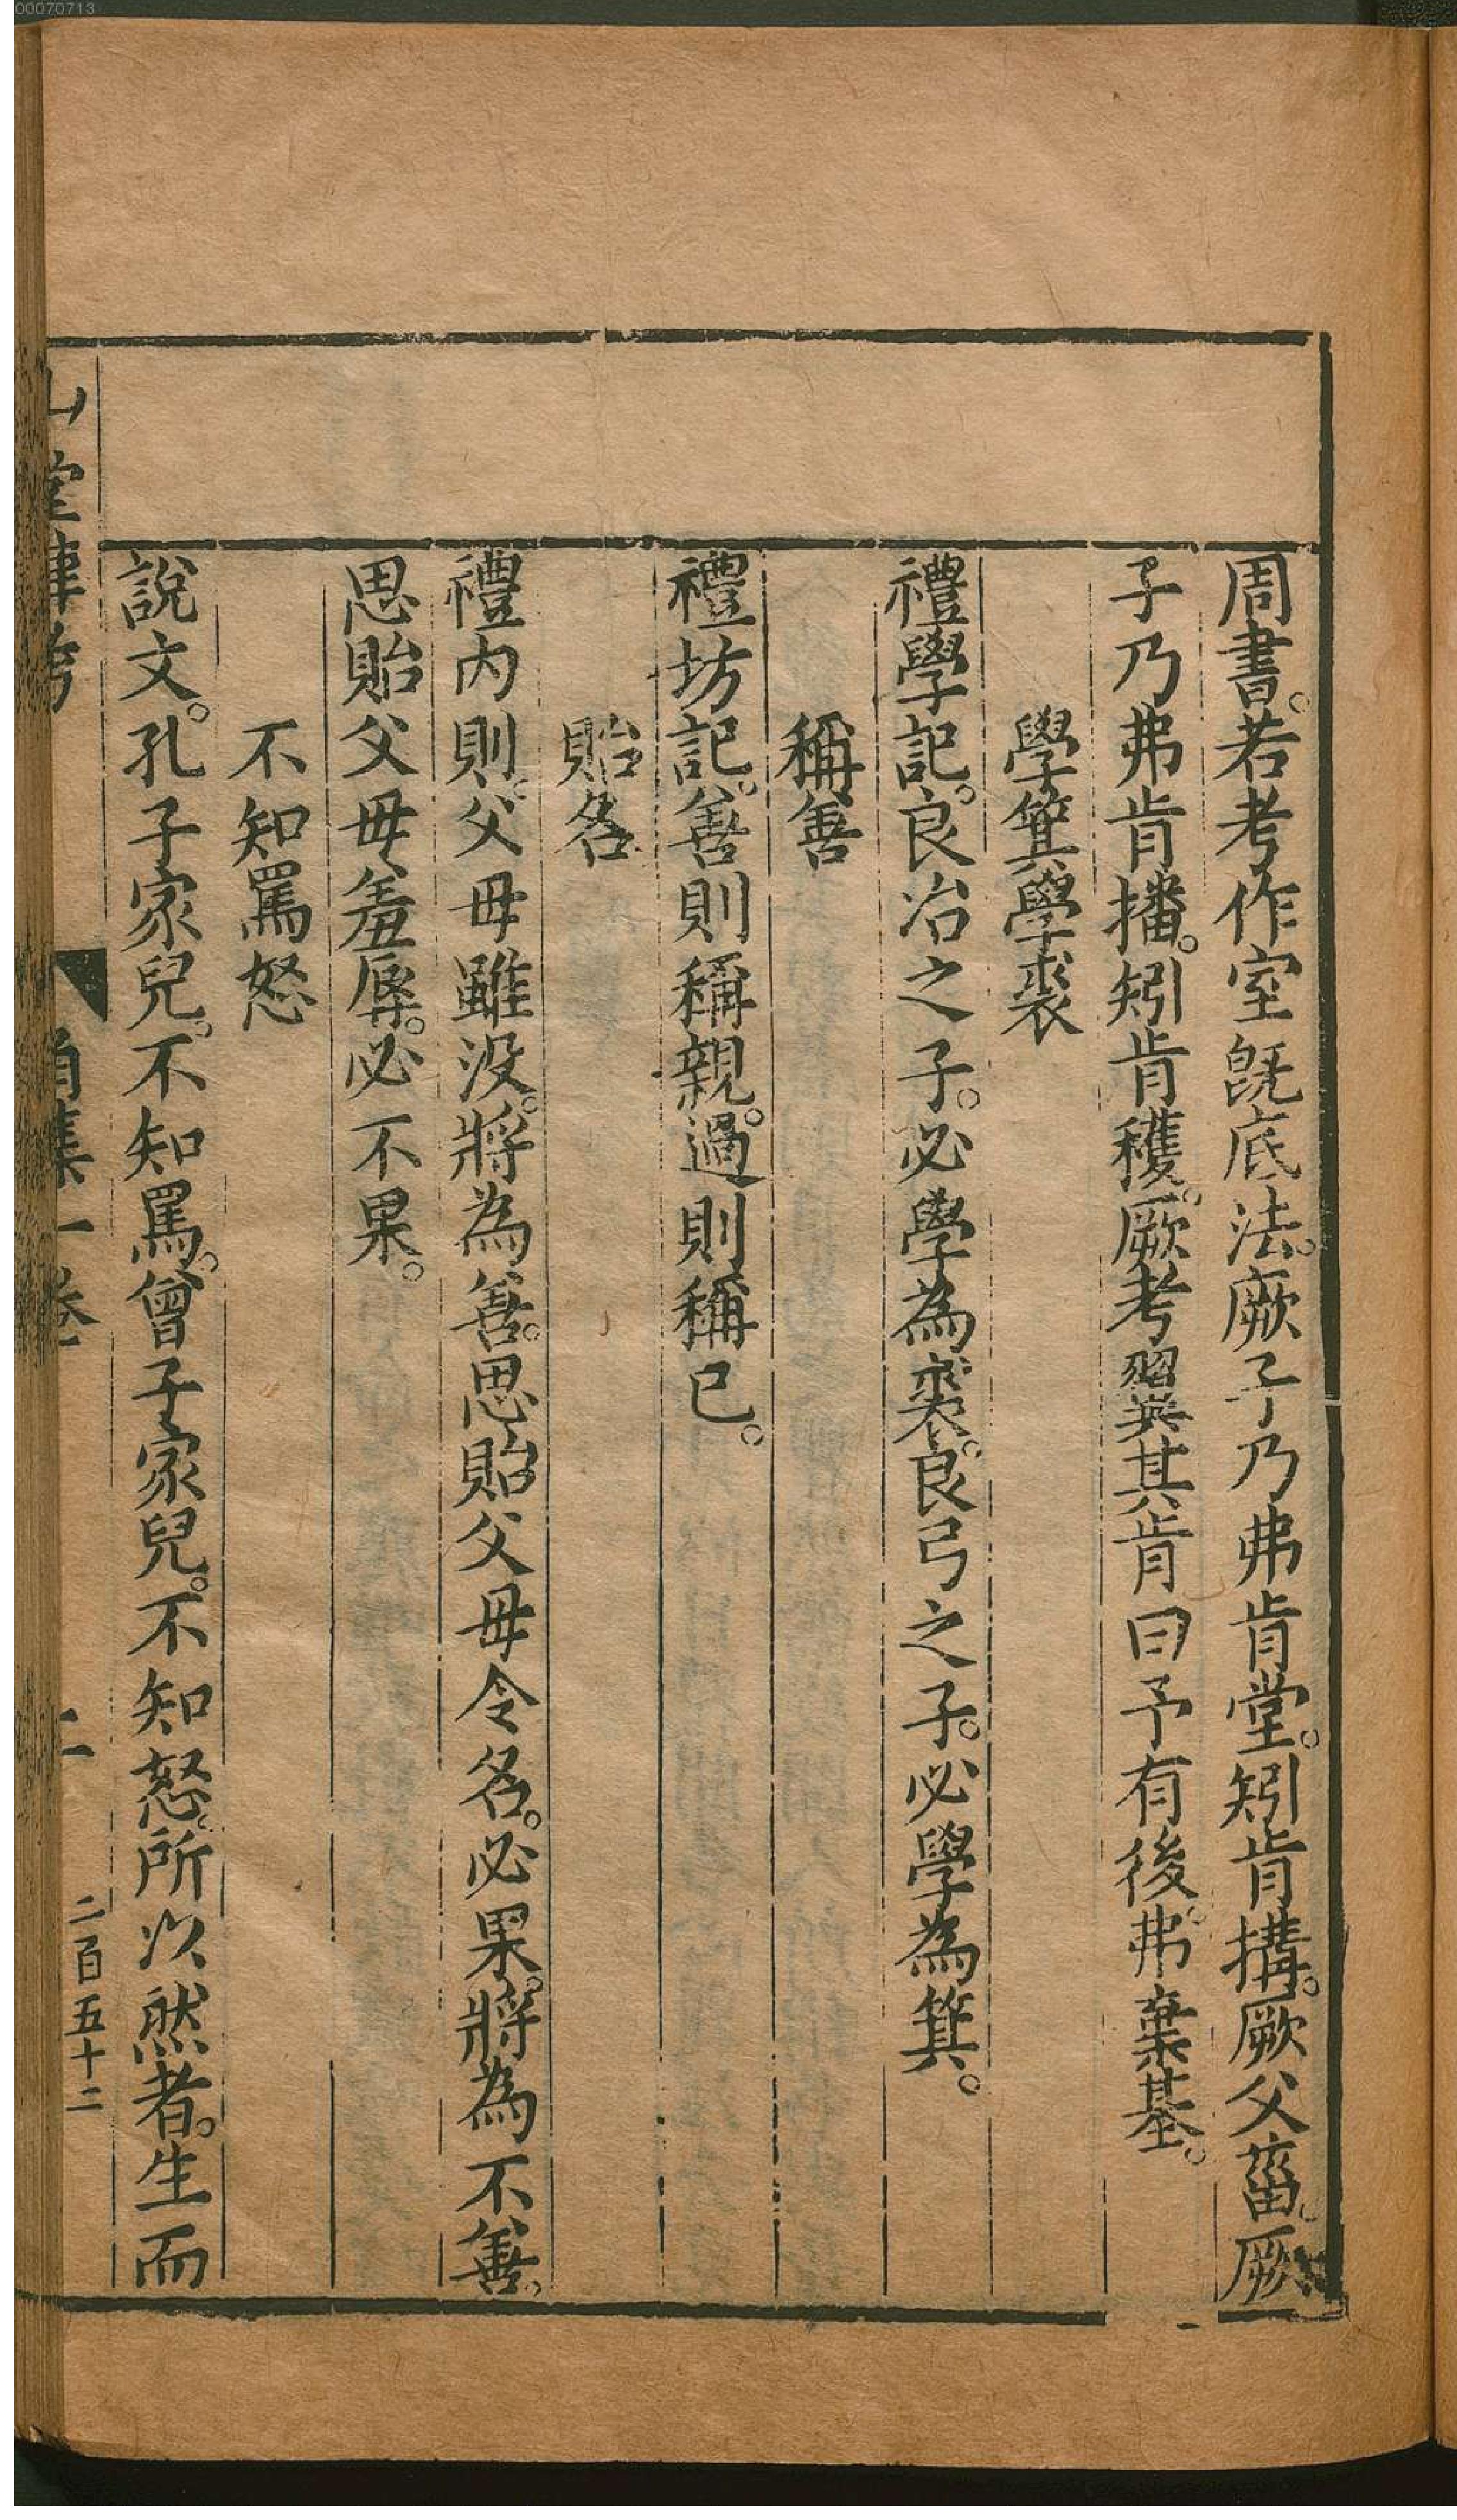 00070713
周書。若考作室旣底法。厥子乃弗肯堂。矧肯構。厥父菑。厥
子乃弗肯播。矧肯穫。厥考翼其肯曰予有後。弗棄基。
學箕學裘
禮學記。良冶之子。必學為裘。良弓之子。必學為箕。
稱善
禮坊記。善則稱親。過則稱已。
貽名
禮內則。父毋雖没。將為善。思貽父毋令名。必果。將為不善。
思貽父毋羞辱。必不果。
不知罵怒
說文。孔子家兒。不知罵。曾子家兒。不知怒。所以然者。生而
山堂肆考
角集一卷
二
二百五十二